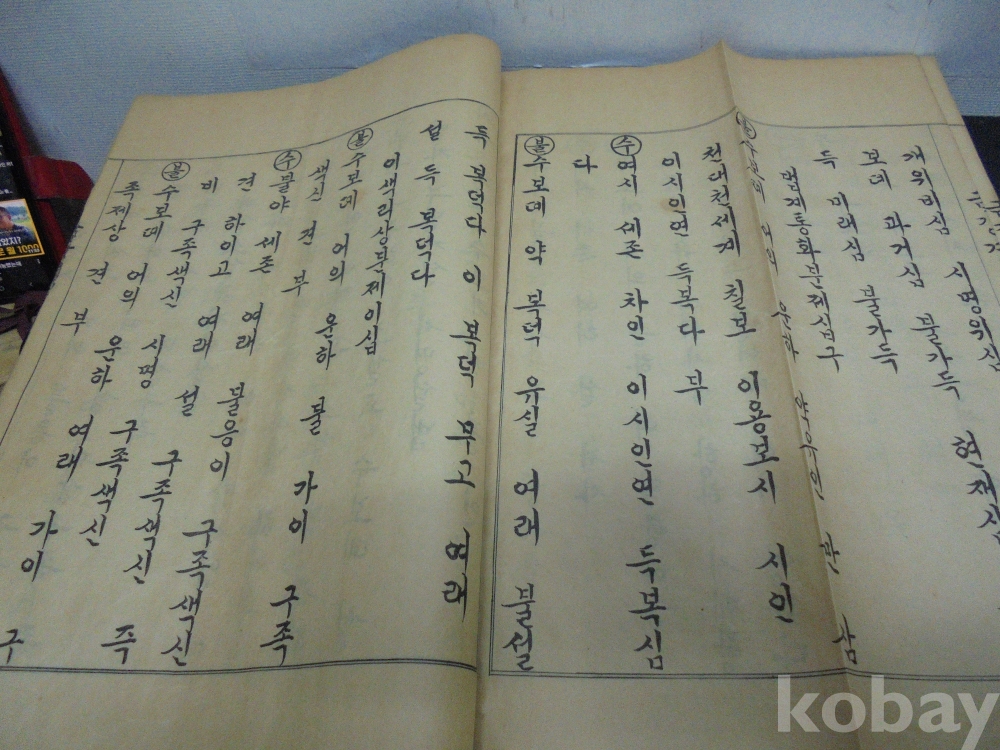 개위비심 시명위심
보데 과거심 불가득 현재
득 미래심 불가득
법계통화분제십구
천대천세계 칠보 이용보시 시인
이시인연 득복다 부
수 여시 세존 차인 이시인연 득복심
다
불 수보데 약 복덕 유실 여래 불설
득 복덕다 이 복덕 무고 여래
설 득 복덕다
이색리상분제이십
불 수보데 어의 운하 불 가이 구족
색신 견 부
수 불야 세존 여래 불응이 구족색신
견 하이고 여래 설 구족색신 즉
비 구족색신 시명 구족색신
불 수보데 어의 운하 여래 가이 구
족제상 견 부
kobay